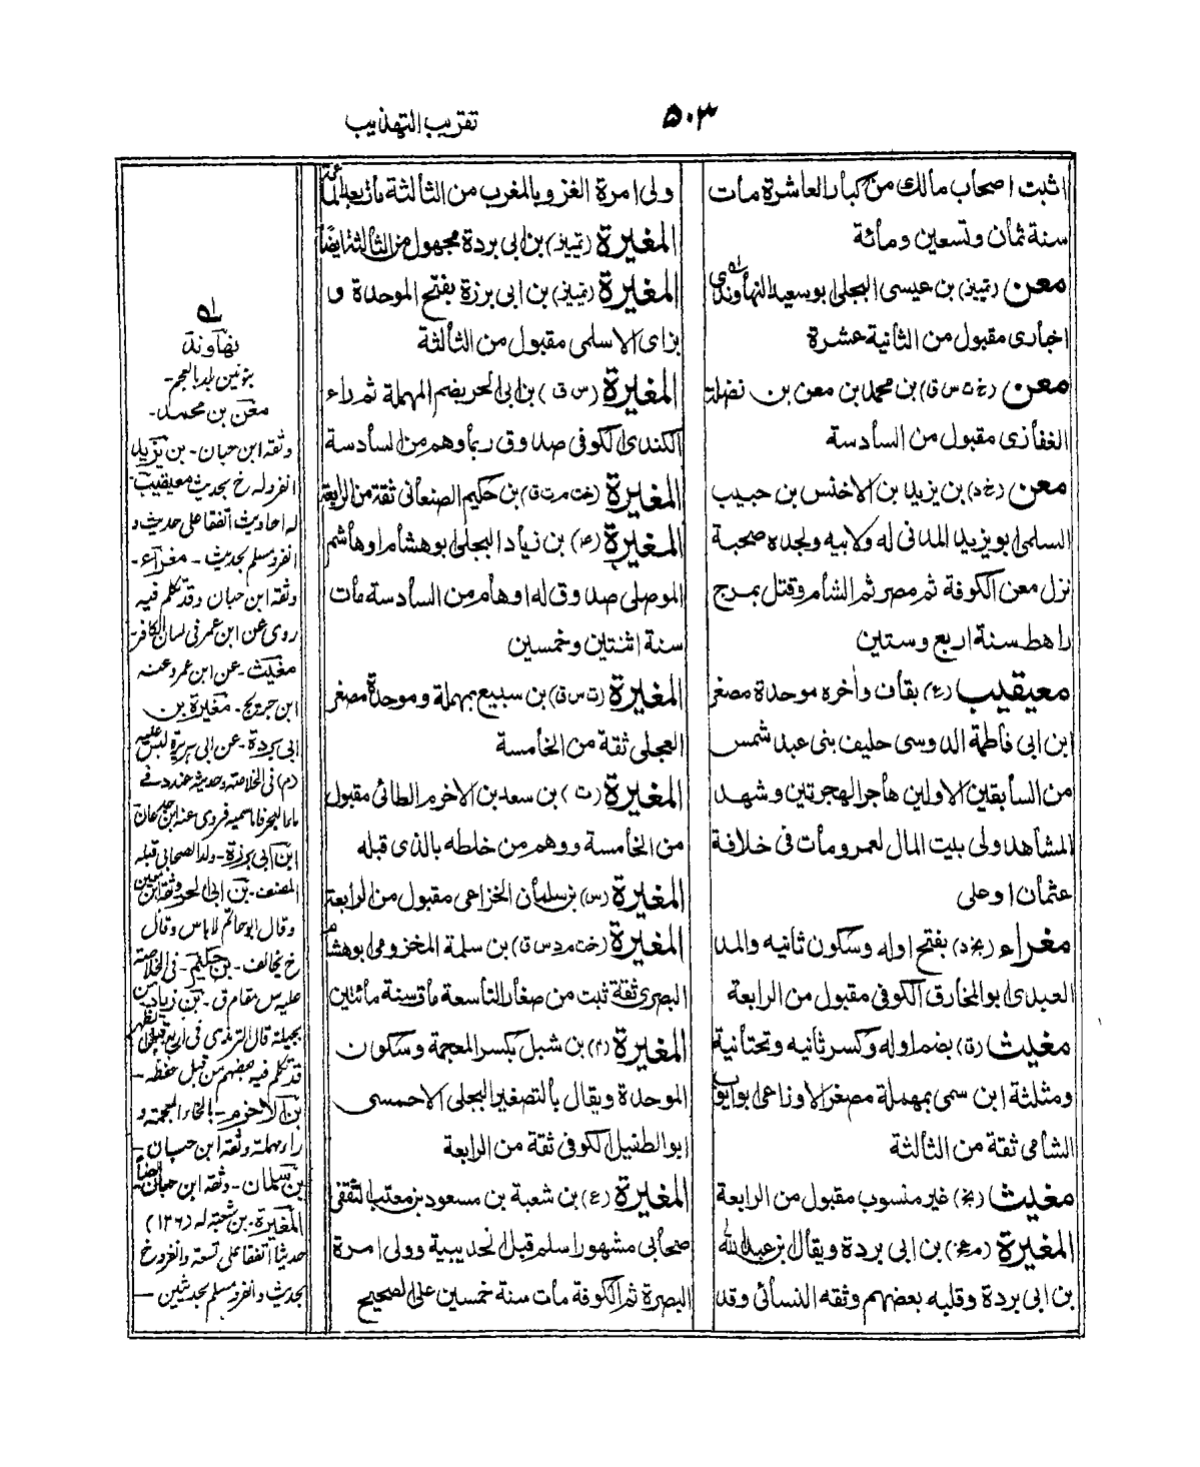 تقريب التهذيب
۵۰۳
اثبت اصحاب مالك من كبار العاشرة مات
سنة ثمان وتسعين ومائة
معن (تمييز) بن عيسى البجلي ابو سعيد النهاوندي
اخباري مقبول من الثانية عشرة
معن (خ ت س ق) بن محمد بن معن بن نضلة
الغفاري مقبول من السادسة
معن (خ د) بن يزيد بن الاخنس بن حبيب
السلمي ابو يزيد المدني له ولابيه ولجده صحبة
نزل معن الكوفة ثم مصر ثم الشام وقتل بمرج
راهط سنة اربع وستين
معيقيب (ع) بقاف واخره موحدة مصغر
ابن ابي فاطمة الدوسي حليف بني عبد شمس
من السابقين الاولين هاجر الهجرتين وشهد
المشاهد ولي بيت المال لعمر ومات في خلافة
عثمان او علي
مغراء (بخ د) بفتح اوله وسكون ثانيه والمد
العبدي ابو المخارق الكوفي مقبول من الرابعة
مغيث (ق) بضم اوله وكسر ثانيه وتحتانية
ومثلثة ابن سمي بمهملة مصغر الاوزاعي ابو ايوب
الشامي ثقة من الثالثة
مغيث (بخ) غير منسوب مقبول من الرابعة
المغيرة بن ابي بردة ويقال بن عبد الله
بن ابي بردة وقلبه بعضهم وثقه النسائي وقد
ولي امرة الغزو بالمغرب من الثالثة مات بعد المائة
المغيرة (تمييز) بن ابي بردة مجهول من الثالثة ايضا
المغيرة (تمييز) بن ابي برزة بفتح الموحدة و
بزاي الاسلمي مقبول من الثالثة
المغيرة (س ق) بن ابي الحر بضم المهملة ثم راء
الكندي الكوفي صدوق ربما وهم من السادسة
المغيرة (خت م ت ق) بن حكيم الصنعاني ثقة من الرابعة
المغيرة (عـ) بن زياد البجلي ابو هشام او هاشم
الموصلي صدوق له اوهام من السادسة مات
سنة اثنتين وخمسين
المغيرة (ت س ق) بن سبيع بمهملة وموحدة مصغر
العجلي ثقة من الخامسة
المغيرة (ت) بن سعد بن الاخرم الطائي مقبول
من الخامسة ووهم من خلطه بالذي قبله
المغيرة (س) بن سلمان الخزاعي مقبول من الرابعة
المغيرة (خت م د س ق) بن سلمة المخزومي ابو هشام
البصري ثقة ثبت من صغار التاسعة مات سنة مائتين
المغيرة (م) بن شبل بكسر المعجمة وسكون
الموحدة ويقال بالتصغير البجلي الاحمسي
ابو الطفيل الكوفي ثقة من الرابعة
المغيرة (ع) بن شعبة بن مسعود بن معتب الثقفي
صحابي مشهور اسلم قبل الحديبية وولي امرة
البصرة ثم الكوفة مات سنة خمسين على الصحيح
نهاوند
بنونين بلد بالعجم-
معن بن محمد-
وثقه ابن حبان- بن يزيد
انفرد له خ بحديث معيقيب-
له احاديث اتفقا على حديث و
انفرد مسلم بحديث - مغراء-
وثقه ابن حبان وقد تكلم فيه
روى عن ابن عمر في لسان الكافر-
مغيث- عن ابن عمر وعنه
ابن جريج- مغيرة بن
ابي بردة- عن ابي هريرة
(دم) في الخلاصة وحديثه عندد في
ابن ابي برزة- ولد الصحابي قبله
المصنف- بن ابي الحر وثقه ابن معين
وقال ابو حاتم لا باس وقال
خ يخالف- بن حكيم- في الخلاصة
بجيلة قال الترمذي
قد تكلم فيه بعضهم من قبل حفظه-
بن الاخرم- بالخاء المعجمة و
راء مهملة وثقه ابن حبان-
بن سلمان- وثقه ابن حبان ايضا
المغيرة- بن شعبة له (۱۳۶)
حديثا اتفقا على تسعة وانفرد خ
بحديث وانفرد مسلم بحديثين-